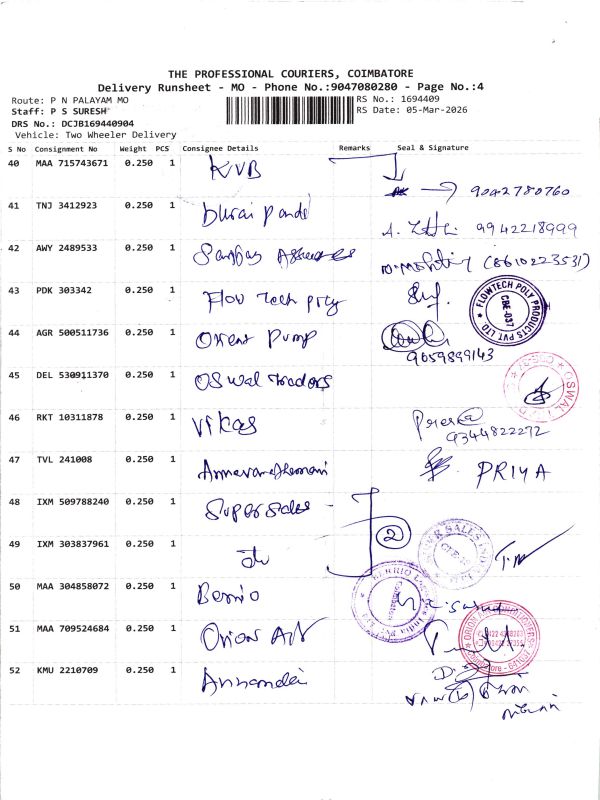 THE PROFESSIONAL COURIERS, COIMBATORE
Delivery Runsheet - MO - Phone No.:9047080280 - Page No.:4
Route: P N PALAYAM MO
RS No.: 1694409
Staff: P S SURESH
RS Date: 05-Mar-2026
DRS No.: DCJB169440904
Vehicle: Two Wheeler Delivery
S No Consignment No Weight PCS Consignee Details Remarks Seal & Signature
40 MAA 715743671 0.250 1 KVB 9042780760
41 TNJ 3412923 0.250 1 Durai Pandi 9942218999
42 AWY 2489533 0.250 1 (8610223531)
43 PDK 303342 0.250 1 Flow Tech Poly
FLOWTECH POLY PRODUCTS PVT LTD
CBE-037
44 AGR 500511736 0.250 1 Orient Pump
9059899143
45 DEL 530911370 0.250 1 Oswal Tradors
OSWAL
46 RKT 10311878 0.250 1 Vikas
9344822272
47 TVL 241008 0.250 1 PRIYA
48 IXM 509788240 0.250 1 Super Sales
2
49 IXM 303837961 0.250 1
50 MAA 304858072 0.250 1 Berrio
51 MAA 709524684 0.250 1 Orion Art
52 KMU 2210709 0.250 1